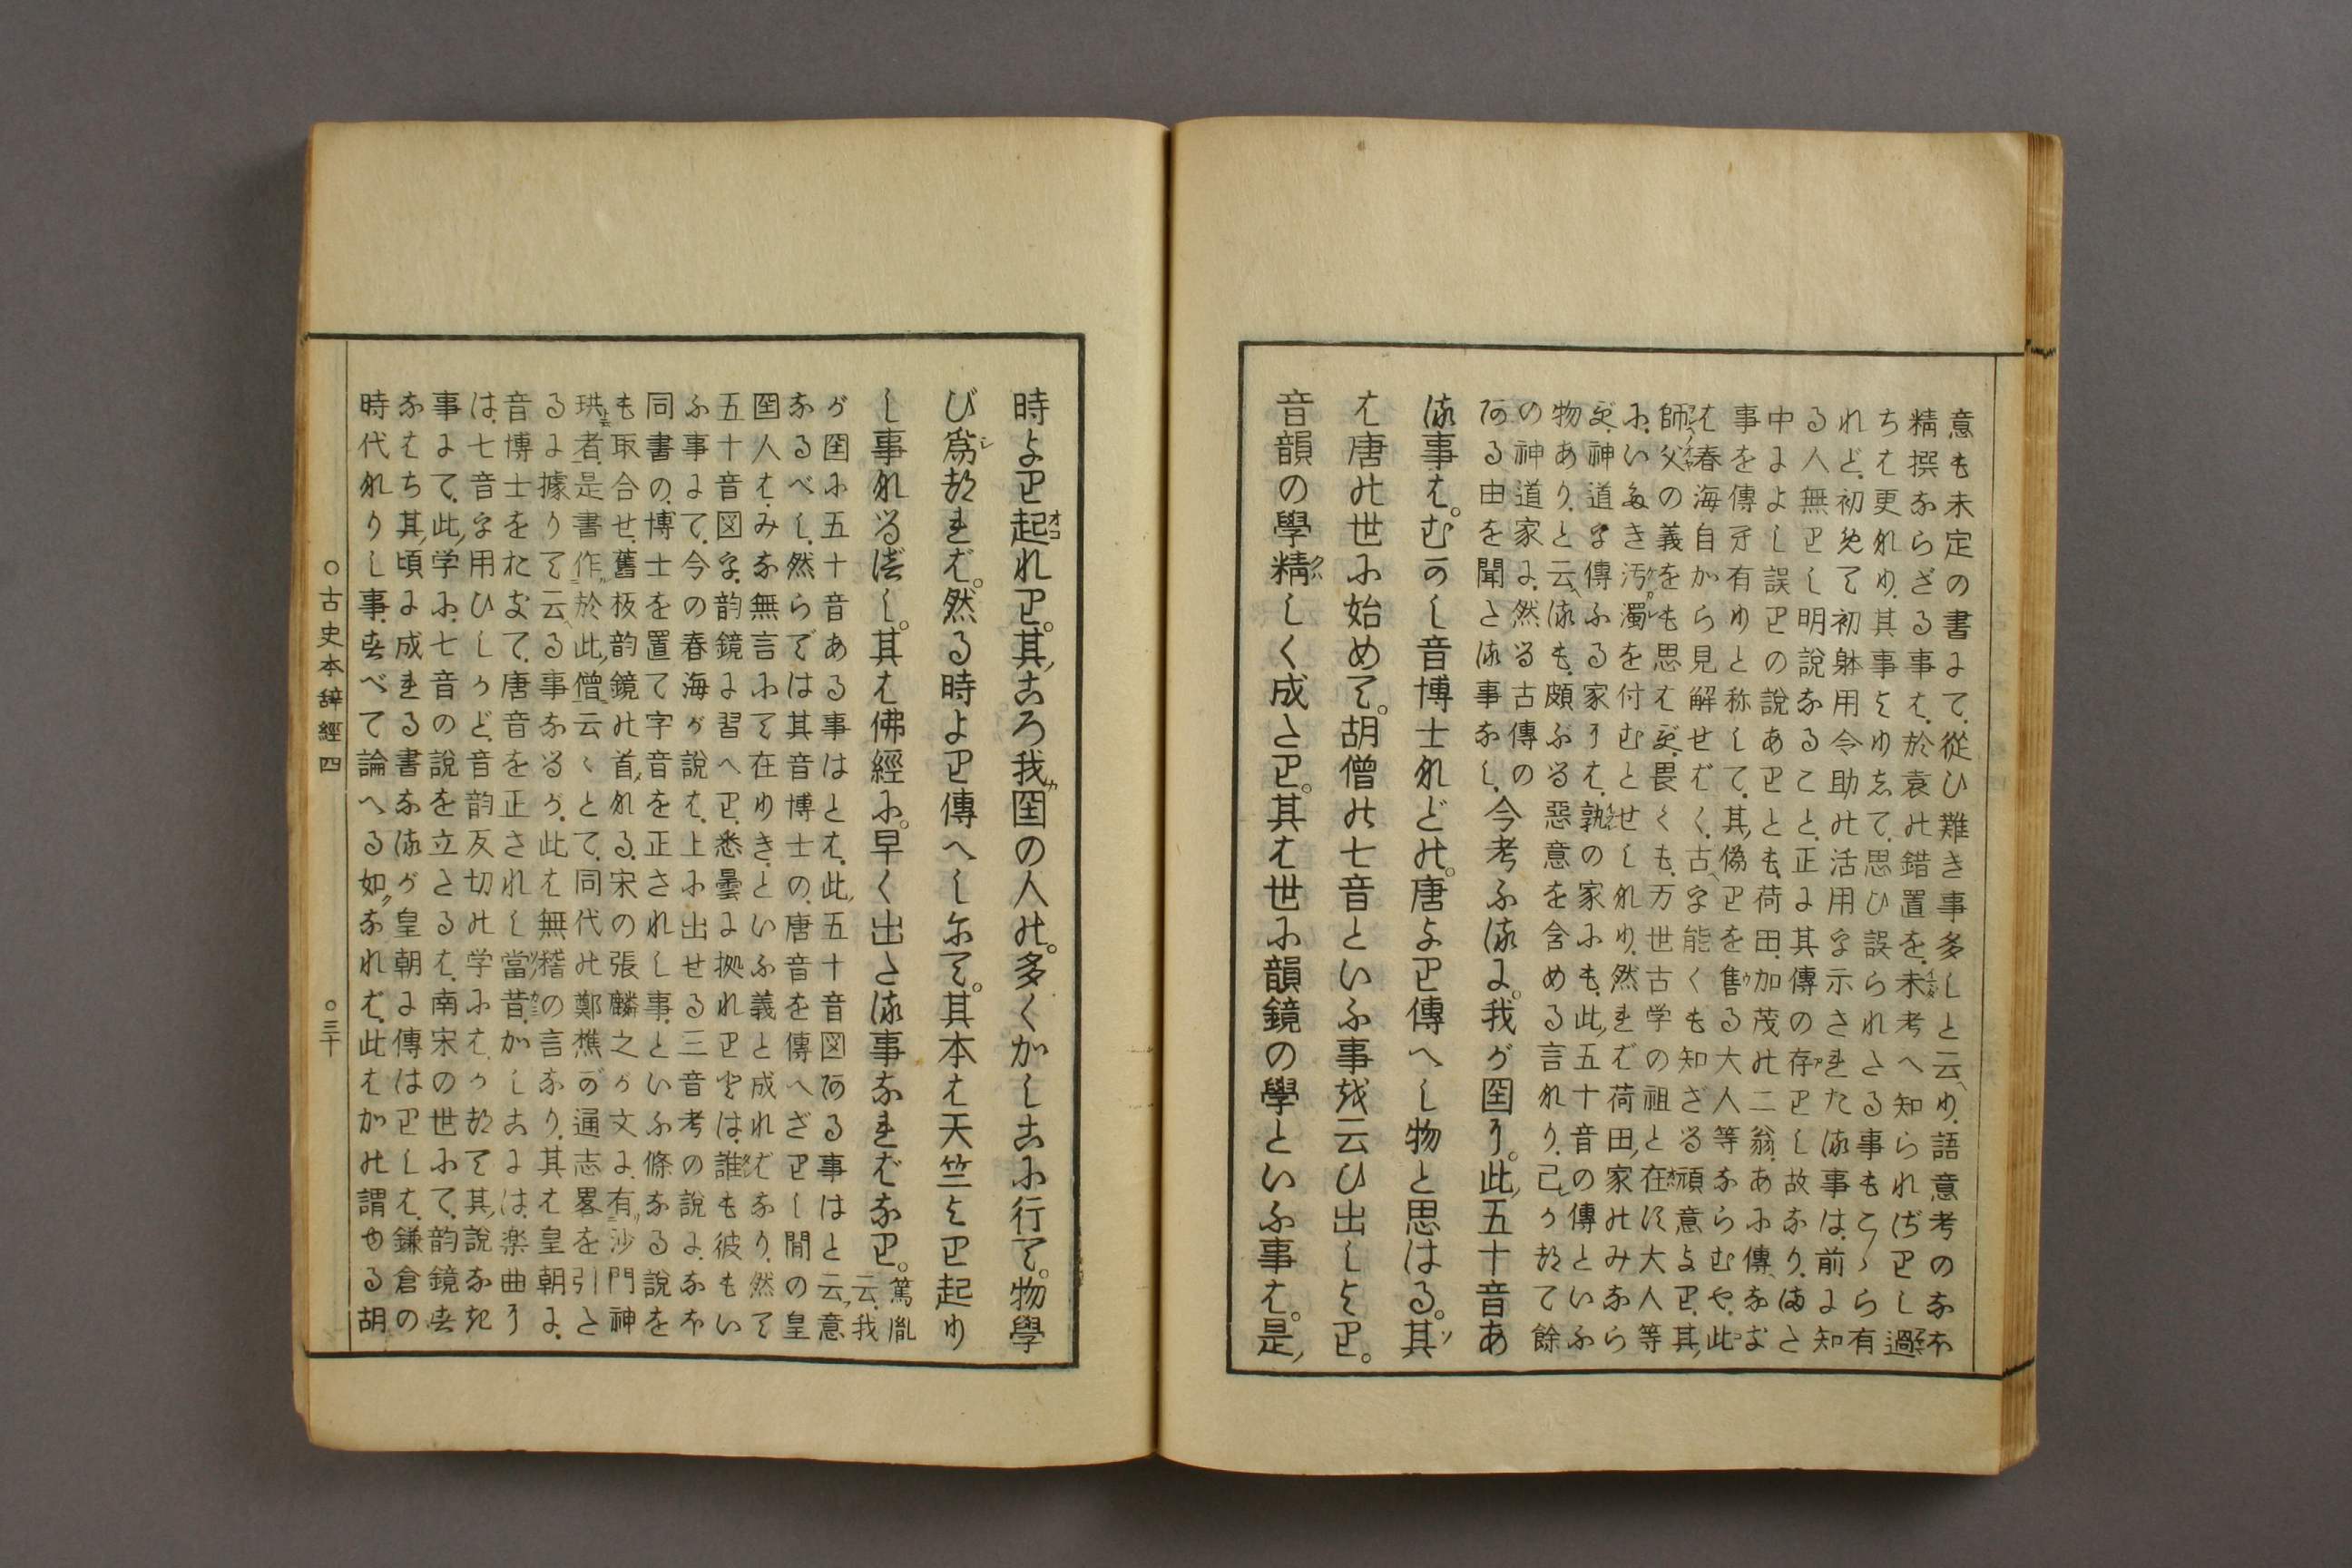 意も未定の書にて、從ひ難き事多しと云へり、語意考のなほ
精撰ならざる事は、於袁の錯置を、未考へ知られざりし過
ちは更なり、其事よりゆゑて、思ひ誤られたる事もこゝら有
れど、初めて初躰用令助の活用を示されたる事は、前に知
る人無りし明説なること、正に其傳の存りし故なり、またさ
中によし誤りの説ありとも、荷田加茂の二翁、あに傳なき
事を傳有りと称して、其僞りを售る大人等ならむや、此
は春海自から見解せばく、古へを能くも知ざる頑意より、其
師父の義をも思はず、畏くも、万世古学の祖と在す大人等
に、いたき汚濁を付むとせしなり、然れば荷田家のみなら
ず、神道を傳ふる家には、孰の家にも、此五十音の傳といふ
物あり、と云へるも、頗ぶる惡意を含める言なり、己かつて餘
の神道家に、然る古傳の
ある由を聞たる事なし、今考ふるに。我が国に。此五十音あ
る事は。むかし音博士などの。唐より傳へし物と思はる。其
は唐の世に始めて。胡僧の七音といふ事を云ひ出しより。
音韻の學精しく成たり。其は世に韻鏡の學といふ事は。是
時より起れり。其ころ我国の人の。多くかしこに行て。物學
び爲つれば。然る時より傳へしにて。其本は天竺より起り
し事なるべし。其は佛經に。早く出たる事なればなり。篤胤云、我
が国に五十音ある事はとは、此五十音図ある事はと云意
なるべし、然らでは其音博士の、唐音を傳へざりし間の皇
国人は、みな無言にて在りき、といふ義と成ればなり、然て
五十音図を、韵鏡に習へり、悉曇に拠れりとは、誰も彼もい
ふ事にて、今の春海が説は、上に出せる三音考の説に、なほ
同書の、博士を置て字音を正されし事、といふ條なる説を
も取合せ、舊板韵鏡の首なる、宋の張麟之が文に、有沙門神
珙者、是書作於此僧云々とて、同代の鄭樵が通志畧を引た
るに據りて云へる事なるが、此は無稽の言なり、其は皇朝に、
音博士をおきて、唐音を正されし當昔、かしこには、楽曲に
は、七音を用ひしかど、音韵反切の学にはかつて其説なき
事にて、此学に、七音の説を立たるは、南宋の世にて、韵鏡す
なはち其頃に成れる書なるが、皇朝に傳はりしは、鎌倉の
時代なりし事、すべて論へる如なれば、此はかの謂ゆる胡
○古史本辭經四 ○三十